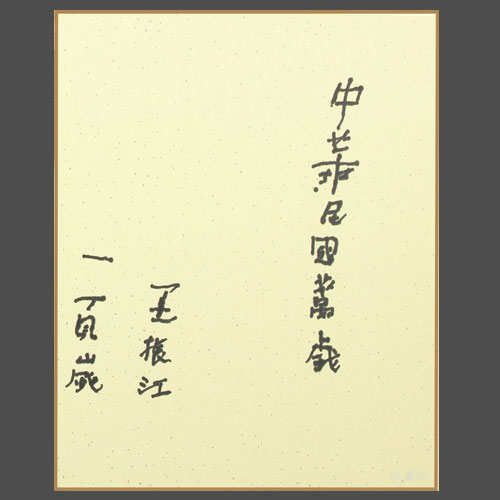 中華民國萬歲
王振江
一百歲